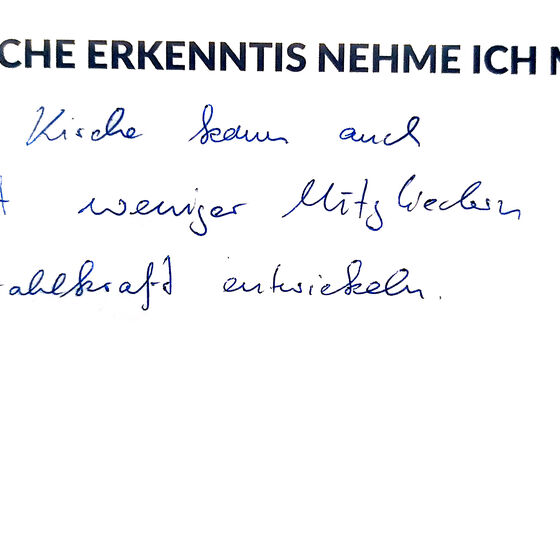 CHE ERKENNTIS NEHME ICH
Kirche kann auch
weniger Mitgliedern
ahlkraft entwickeln.